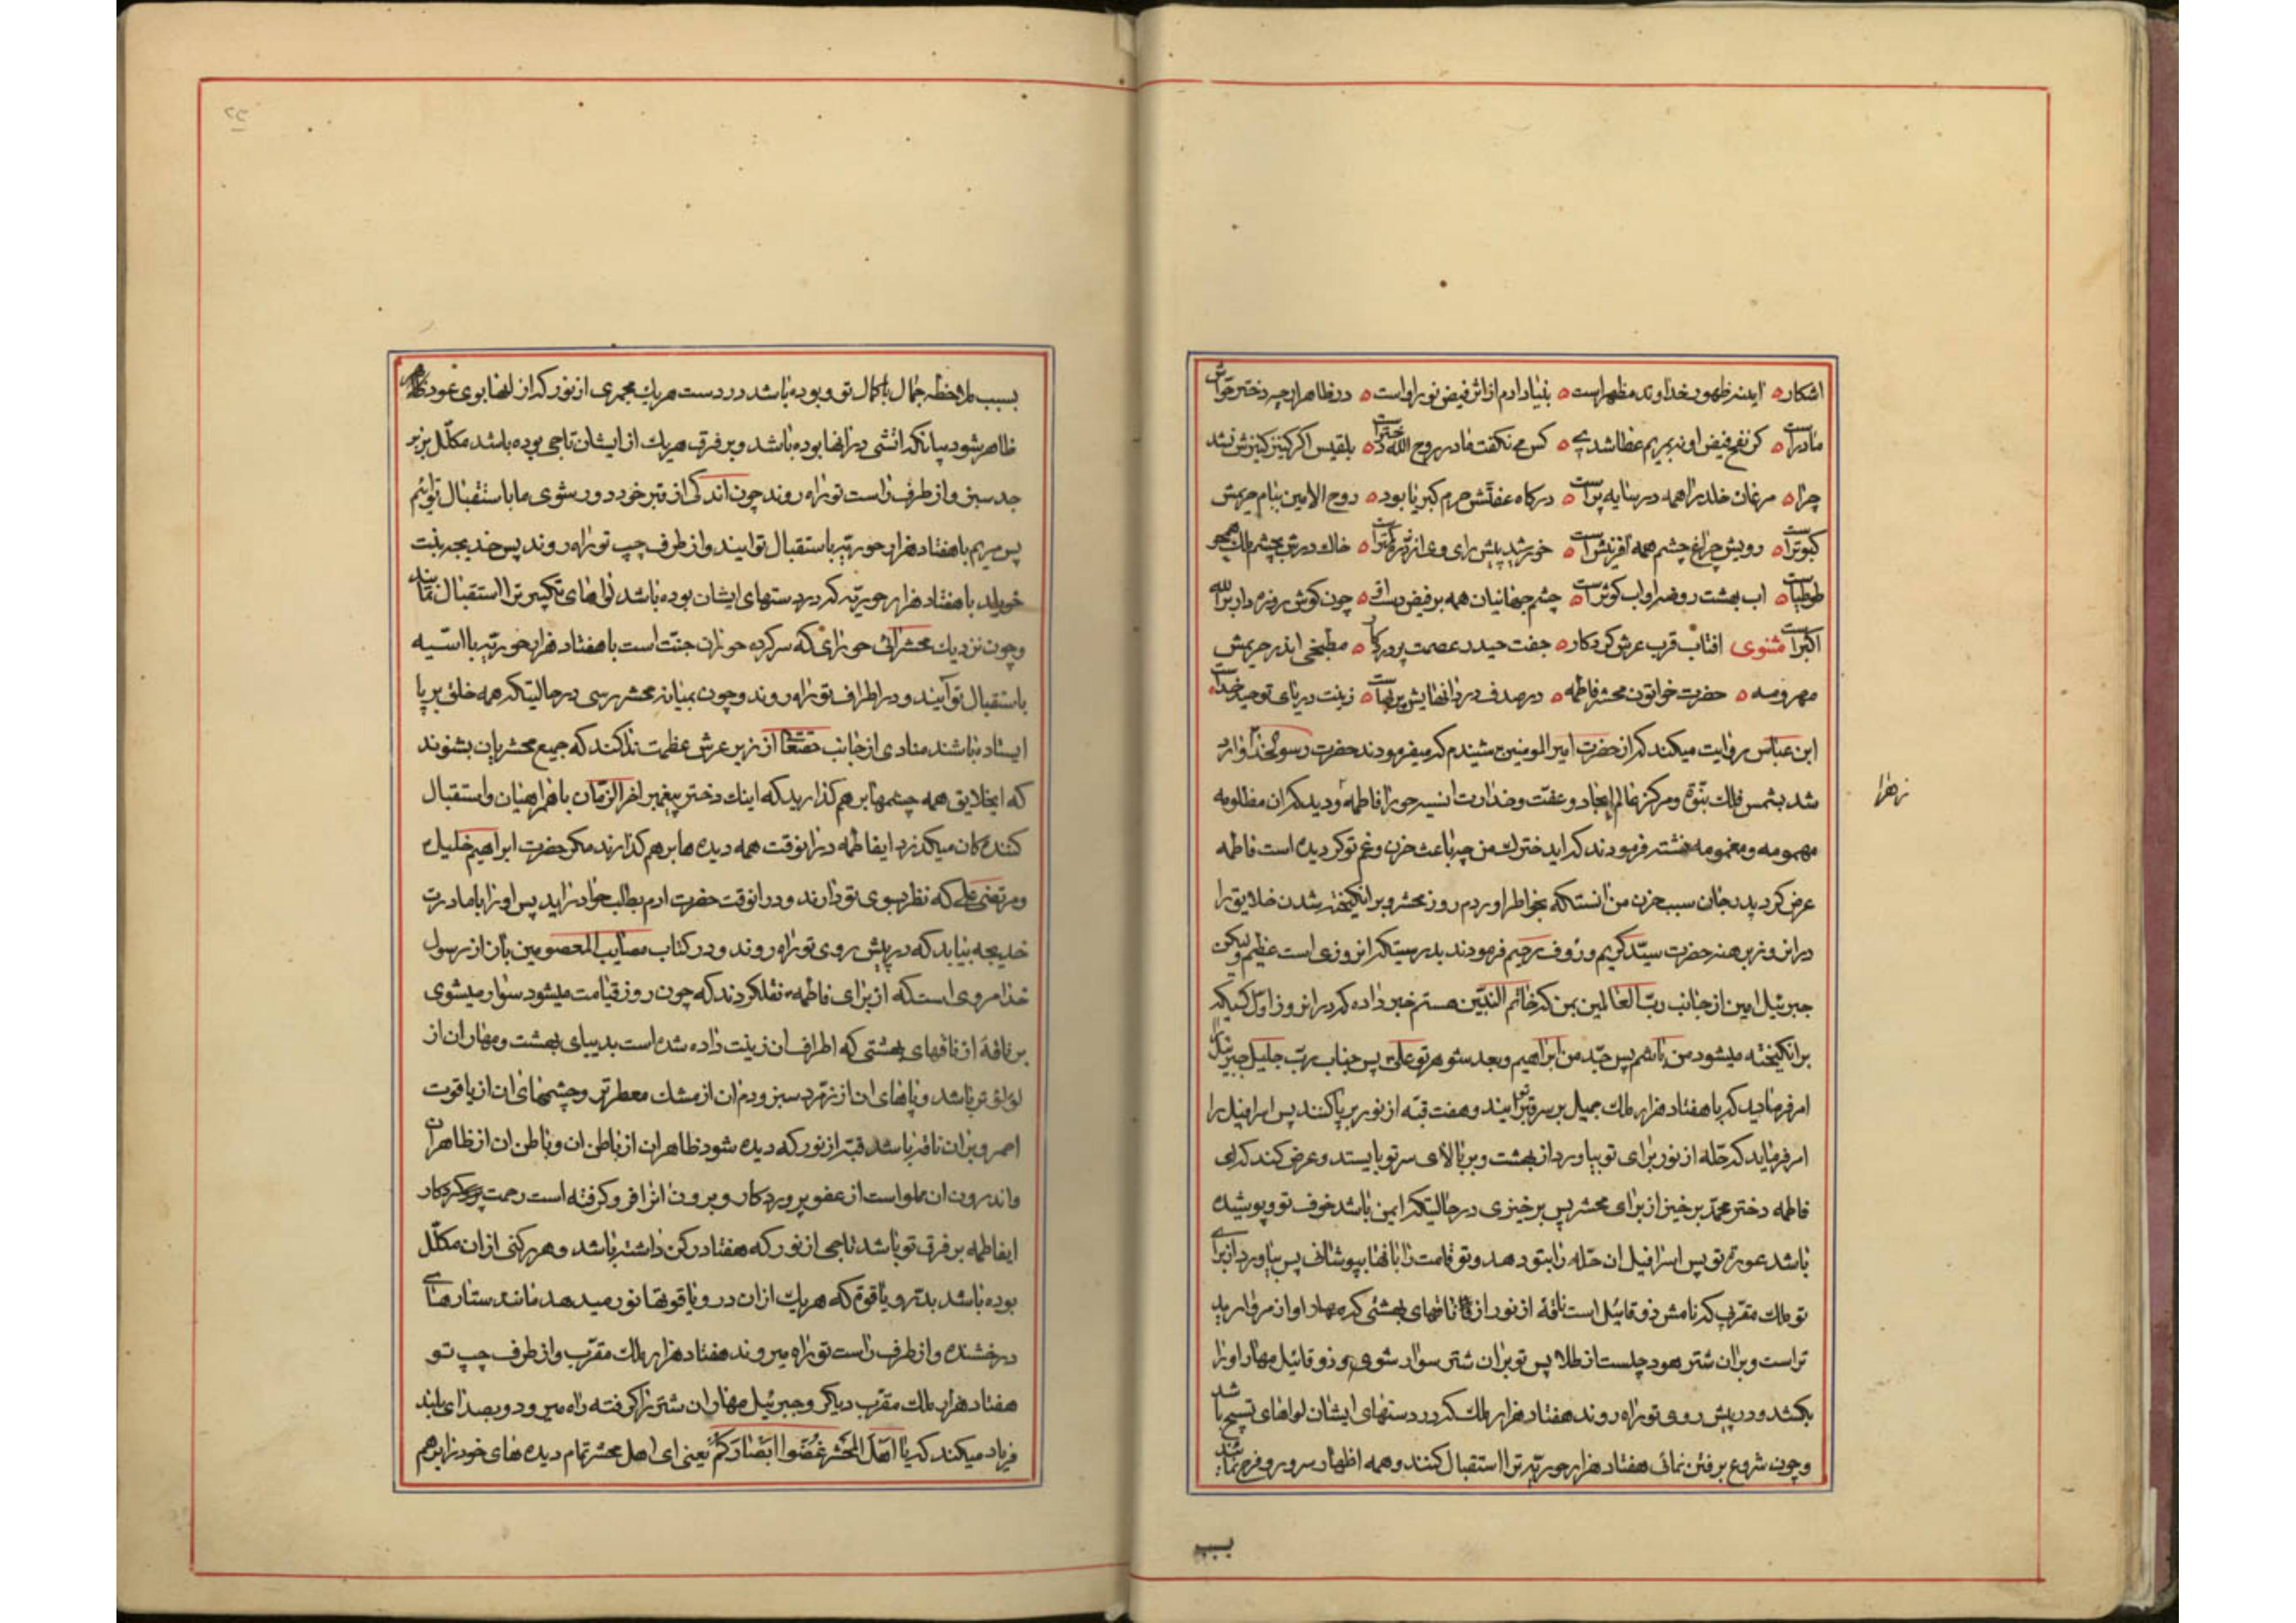 اشکار ه اینه ظهور خداوند مظهر است ه بنیاد ادم از اثر فیض نور او است ه در ظاهر ارچه دختر حواش
مادر است ه کز نفخ فیض او به مریم عطا شد ه کس می نکفت مادر روح الله دختر است ه بلقیس اکر کنیز کنیزش نشد
چرا ه مرغان خلد را همه در سایه پر است ه درکاه عفتش حرم کبریا بود ه روح الامین ببام حریمش
کبوتر است ه رویش چراغ چشم همه افرینش است ه خورشید پیش رای وی از ذره کمتر است ه خاک درش بچشم ملک همچو
طوطیا است ه اب بهشت روضه او اب کوثر است ه چشم جهانیان همه بر فیض دست ه چون کوش روزه دار بر الله
اکبر است مثنوی افتاب قرب عرش کردکار ه جفت حیدر عصمت پروردکار ه مطبخی اندر حریمش
مهر و مه ه حضرت خواتون محشر فاطمه ه در صدف دردانهایش بی بهاست ه زینت دریای توحید خداست ه
ابن عباس روایت میکند که از حضرت امیر المومنین شنیدم که میفرمودند حضرت رسولخدا وارد
شد بشمس فلک نبوة و مرکز عالم ایجاد و عفت و خدارت انسیه حورا فاطمه و دید که ان مظلومه
زهرا
مهمومه و مغمومه نشسته فرمودند که ایدخترک من چه باعث حزن و غم تو کردیده است فاطمه
عرض کرد پدر جان سبب حزن من انستکه بخواطر اوردم روز محشر و برانکیخته شدن خلایق را
در انروز برهنه حضرت سید کریم و رؤف رحیم فرمودند بدرستیکه انروزی است عظیم ولیکن
جبرئیل امین از جانب رب العالمین بمن که خاتم النبیین هستم خبر داده که در انروز اول کسیکه
برانکیخته میشود من باشم پس جد من ابراهیم و بعد شوهر تو علی پس جناب رب جلیل جبرئیل را
امر فرماید که با هفتاد هزار ملک جمیل بر سر قبر تو ایند و هفت قبه از نور بر پا کنند پس اسرافیل را
امر فرماید که حله از نور برای تو بیاورد از بهشت و بر بالای سر تو بایستد و عرض کند که ای
فاطمه دختر محمد برخیز از برای محشر پس برخیزی در حالتیکه ایمن باشد خوف تو و پوشیده
باشد عورة تو پس اسرافیل ان حله را بتو دهد و تو قامت را بانها بپوشانی پس بیاورد از برای
تو ملک مقرب که نامش ذوقائیل است ناقه از نور از ناقهای بهشتی که مهار او از مروارید
تر است و بر ان شتر هودجیست از طلا پس تو بر ان شتر سوار شوی و ذوقائیل مهار او را
بکشد و در پیش روی تو راه روند هفتاد هزار ملک که در دستهای ایشان لواهای تسبیح باشد
و چون شروع برفتن نمائی هفتاد هزار حوریه ترا استقبال کنند و همه اظهار سرور و فرح نمایند
بسبب
بسبب ملاحظه جمال با کمال تو و بوده باشد در دست هر یک مجمری از نور که از انها بوی عود ظاهر
ظاهر شود بیانکه اتشی در انها بوده باشد و بر فرق هریک از ایشان تاجی بوده باشد مکلل بزبر
جد سبز و از طرف راست تو راه روند چون اندکی از قبر خود دور شوی مابا ستقبال تو
پس مریم با هفتاد هزار حوریه باستقبال تو ایند و از طرف چپ تو راه روند پس خدیجه بنت
خویلد با هفتاد هزار حوریه که در دستهای ایشان بوده باشد لواهای تکبیر ترا استقبال نمایند
و چون نزدیک محشر ائی حورای که سرکرده حوران جنت است با هفتاد هزار حوریه با اسیه
باستقبال تو آیند و در اطراف تو راه روند و چون بمیانه محشر رسی در حالتیکه همه خلق بر پا
ایستاده باشند منادی از جانب حقتعالی از زیر عرش عظمت ندا کند که جمیع محشریان بشنوند
که ایخلایق همه چشمها بر هم کذارید که اینک دختر پیغمبر اخر الزمان با همراهیان و استقبال
کننده کان میکذرد ایفاطمه در انوقت همه دیده ها بر هم کذارند مکر حضرت ابراهیم خلیل
و مرتضی علی که نظر بسوی تو دارند و در انوقت حضرت ادم بطلب حوا در اید پس او را با مادرت
خدیجه بیابد که در پیش روی تو راه روند و در کتاب مصایب المعصومین باز از رسول
خدا مروی است که از برای فاطمه نقلکردند که چون روز قیامت میشود سوار میشوی
بر ناقه از ناقهای بهشتی که اطراف ان زینت داده شده است بدیبای بهشت و مهار ان از
لؤلؤ تر باشد و پاهای ان از زمرد سبز و دم ان از مشک معطر تر و چشمهای ان از یاقوت
احمر و بر ان ناقه باشد قبه از نور که دیده شود ظاهر ان از باطن ان و باطن ان از ظاهر ان
و اندرون ان مملو است از عفو پروردکار و برون انرا فرو کرفته است رحمت کردکار
ایفاطمه بر فرق تو باشد تاجی از نور که هفتاد رکن داشته باشد و هر رکنی از ان مکلل
بوده باشد بدر و یاقوت که هر یک از ان در و یاقوتها نور میدهد مانند ستارهای
درخشنده و از طرف راست تو راه میروند هفتاد هزار ملک مقرب و از طرف چپ تو
هفتاد هزار ملک مقرب دیکر و جبرئیل مهار ان شتر را کرفته راه میرود و بصدای بلند
فریاد میکند که یا اهل المحشر غضوا ابصارکم یعنی ای اهل محشر تمام دیده های خود را بر هم